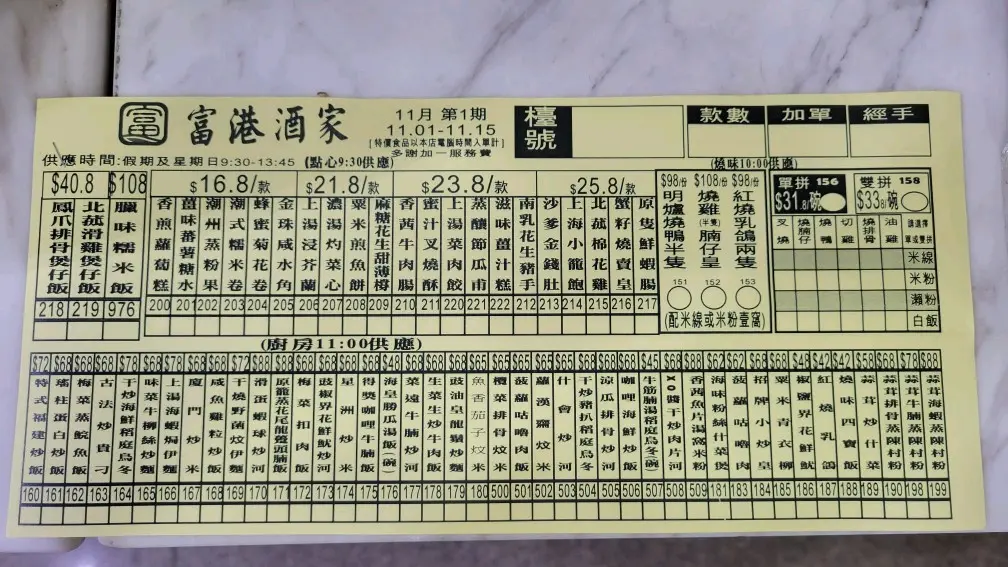 富 富港酒家
11月 第1期
11.01-11.15
[特價食品以本店電腦時間入單計]
多謝加一服務費
檯號
款數 加單 經手
供應時間:假期及星期日9:30-13:45 (點心9:30供應)
(燒味10:00供應)
$40.8 $108 $16.8/款 $21.8/款 $23.8/款 $25.8/款
鳳爪排骨煲仔飯 218
北菰滑雞煲仔飯 219
臘味糯米飯 976
香煎蘿蔔糕 200
薑味蕃薯糖水 201
潮州蒸粉果 202
潮式糯米卷 203
蜂蜜菊花卷 204
金珠咸水角 205
上湯浸芥蘭 206
濃湯灼菜心 207
粟米煎魚餅 208
麻糖花生甜薄罉 209
香茜牛肉腸 210
蜜汁叉燒酥 211
上湯菜肉餃 220
蒸釀節瓜甫 221
滋味薑汁糕 222
南乳花生豬手 212
沙爹金錢肚 213
上海小籠飽 214
北菰棉花雞 215
蟹籽燒賣皇 216
原隻鮮蝦腸 217
$98/份 明爐燒鴨半隻 151
$108/份 燒雞(半隻)腩仔皇 152
$98/份 紅燒乳鴿兩隻 153
(配米線或米粉壹窩)
單拼 156 $31.8/碗
雙拼 158 $33.8/碗
叉燒 燒腩仔 燒鴨 切雞 燒排骨 油雞 請選擇單或雙拼
米線
米粉
瀨粉
白飯
(廚房11:00供應)
$72 特式福建炒飯 160
$68 瑤柱蛋白炒飯 161
$68 梅菜蒸鯇魚飯 162
$68 古法炒貴刁 163
$78 干炒海鮮稻庭烏冬 164
$68 味菜牛柳絲炒麵 165
$78 上湯海蝦焗伊麵 166
$68 廈門炒米 167
$68 咸魚雞粒炒飯 168
$72 干燒野菌炆伊麵 169
$88 滑蛋蝦球炒河 170
$68 原籠蒸花尾龍躉頭腩飯 171
$68 梅菜扣肉飯 172
$68 豉椒界花鮮魷炒河 173
$68 星洲炒米 174
$68 得獎咖哩牛腩飯 175
$48 海皇勝瓜湯飯(碗) 176
$68 菜遠牛肉炒飯 177
$68 生菜生炒牛肉飯 178
$68 豉油皇龍鬚炒麵 179
魚香茄子炆米 180
欖菜排骨炆米 500
菠蘿咕嚕肉飯 501
蘿漢齋炆米 502
什會炒河 503
干炒豬扒稻庭烏冬 504
涼瓜排骨炒河 505
咖哩海鮮炒飯 506
$45 牛筋腩湯稻庭烏冬(碗) 507
$68 XO醬干炒肉片河 508
$88 香茜魚片湯窩米 509
$62 海味粉絲什菜煲 181
$62 菠蘿咕嚕肉 183
$68 招牌小炒皇 184
$68 粟米青衣柳 185
$48 椒鹽界花鮮魷 186
$42 紅燒乳鴿 187
$42 燒味四寶飯 188
$58 蒜茸炒什菜 189
$68 蒜茸排骨蒸陳村粉 190
$78 蒜茸牛腩蒸陳村粉 198
$88 蒜茸海蝦蒸陳村粉 199